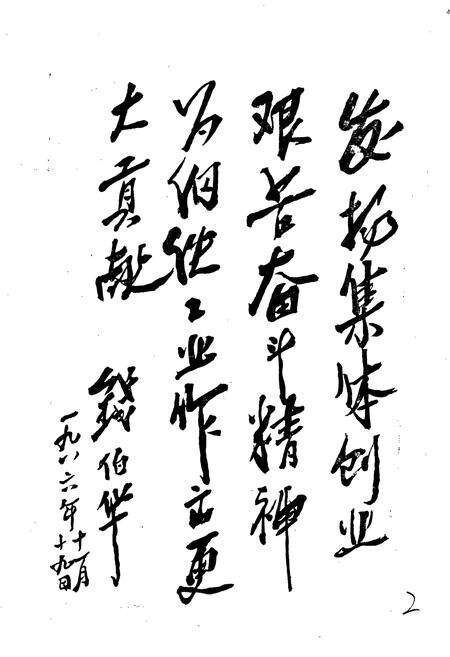 发扬集体创业
艰苦奋斗精神
为工业作出更
大贡献
钱伯华
一九八六年十一月
十九日
2